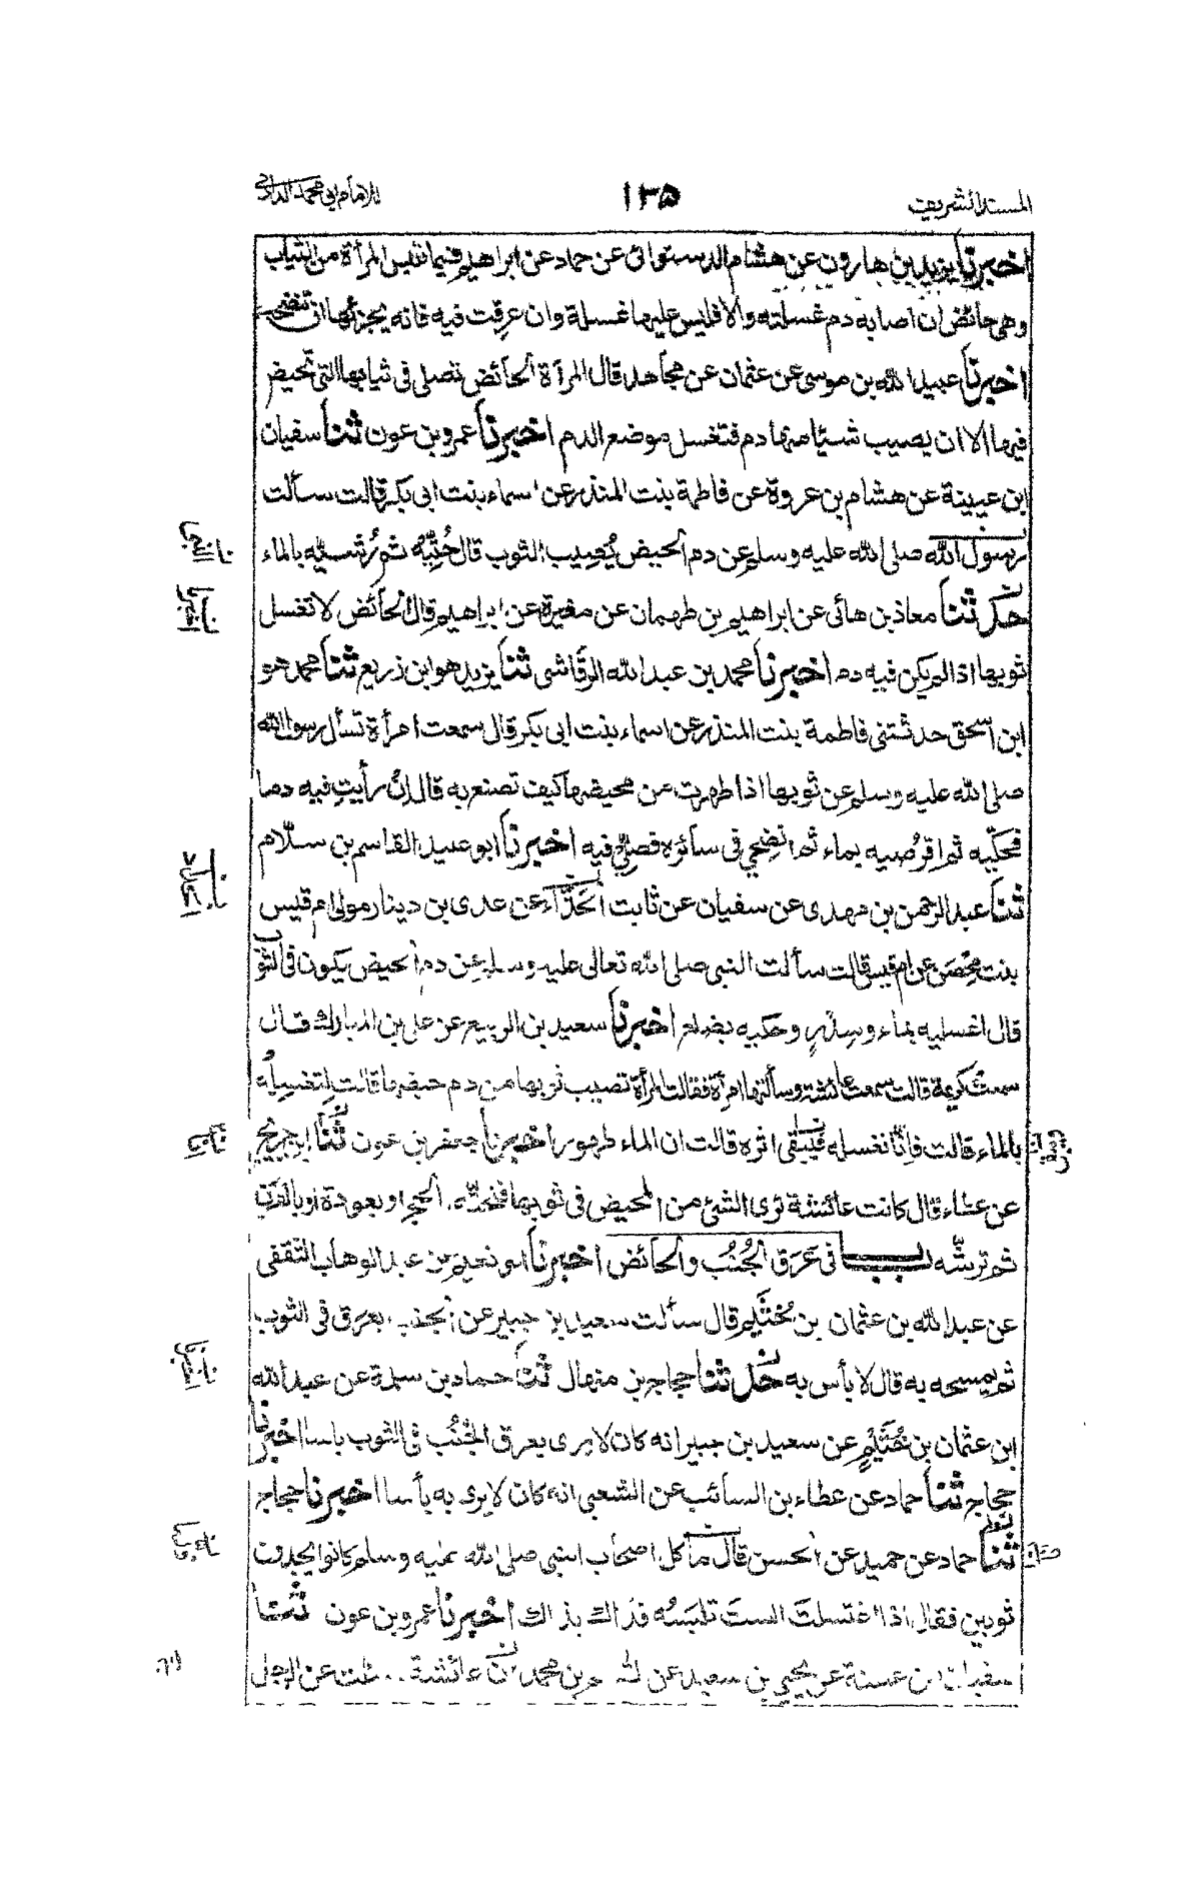 المسند الشريف
١٣٥
للامام ابي محمد الدارمي
اخبرنا يزيد بن هارون عن هشام الدستوائى عن حماد عن ابراهيم فيما تلبس المرأة من الثياب
وهي حائض ان اصابه دم غسلته والا فليس عليها غسلة وان عرقت فيه فانه يجزئها ان تنضحه
اخبرنا عبيد الله بن موسى عن عثمان عن مجاهد قال المرأة الحائض تصلى فى ثيابها التى تحيض
فيها الا ان يصيب شيئا منها دم فتغسل موضع الدم اخبرنا عمرو بن عون ثنا سفيان
ابن عيينة عن هشام بن عروة عن فاطمة بنت المنذر عن اسماء بنت ابى بكر قالت سألت
رسول الله صلى الله عليه وسلم عن دم الحيض يُصِيب الثوب قال حُتِّيْهُ ثم رُشيه بالماء
حدثنا معاذ بن هانى عن ابراهيم بن طهمان عن مغيرة عن ابراهيم قال الحائض لا تغسل
ثوبها اذا لم يكن فيه دم اخبرنا محمد بن عبد الله الرقاشى ثنا يزيد هو ابن زريع ثنا محمد هو
ابن اسحق حدثتنى فاطمة بنت المنذر عن اسماء بنت ابى بكر قال سمعت امرأة تسأل رسول الله
صلى الله عليه وسلم عن ثوبها اذا طهرت من محيضها كيف تصنع به قال اِنْ رأيتِ فيه دما
فحكّيه ثم اقرُصيه بماء ثم انضِحي فى سائره فصلّى فيه اخبرنا ابو عبيد القاسم بن سلّام
ثنا عبد الرحمن بن مهدى عن سفيان عن ثابت الحَدّاء عن عدى بن دينار مولى ام قيس
بنت مِحْصَن عن ام قيس قالت سألت النبى صلى الله تعالى عليه وسلم عن دم الحيض يكون فى الثوب
قال اغسليه بماء وسِدْرٍ وحكيه بضلع اخبرنا سعيد بن الربيع عن على بن المبارك قال
سمعتُ كريمة قالت سمعت عائشة وسألتها امرأة فقالت المرأة تصيب ثوبها من دم حيضها قالت لِتغسِلْهُ
بالماء قالت فاِنّا نغسله فيبقى اثره قالت ان الماء طهور اخبرنا جعفر بن عون ثنا ابن جريج
عن عطاء قال كانت عائشة ترى الشئ من المحيض فى ثوبها فتحتّه بالحجر او بعودة او بالقرن
ثم ترشّه باب فى عَرَق الجُنُب والحائض اخبرنا ابو نعيم عن عبد الوهاب الثقفى
عن عبد الله بن عثمان بن خُثَيْم قال سألت سعيد بن جبير عن الجنب يعرَق فى الثوب
ثم يمسحه به قال لا بأس به حدثنا حجاج بن منهال ثنا حماد بن سلمة عن عبد الله
ابن عثمان بن خُثَيْمٍ عن سعيد بن جبير انه كان لا يرى بعرق الجُنُب فى الثوب باسا اخبرنا
حجاج ثنا حماد عن عطاء بن السائب عن الشعبي انه كان لا يرى به بأسا اخبرنا حجاج
ثنا حماد عن حميد عن الحسن قال ما كل اصحاب النبى صلى الله عليه وسلم كانوا يجدون
ثوبين فقال اذا اغتسلتَ الستَ تلبَسُه فذاك بذاك اخبرنا عمرو بن عون ثنا
سفيان بن عيينة عن يحيى بن سعيد عن القاسم بن محمد ان عائشة سئلت عن الرجل